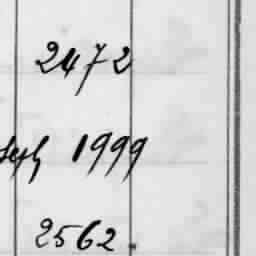 2472
1999
2562